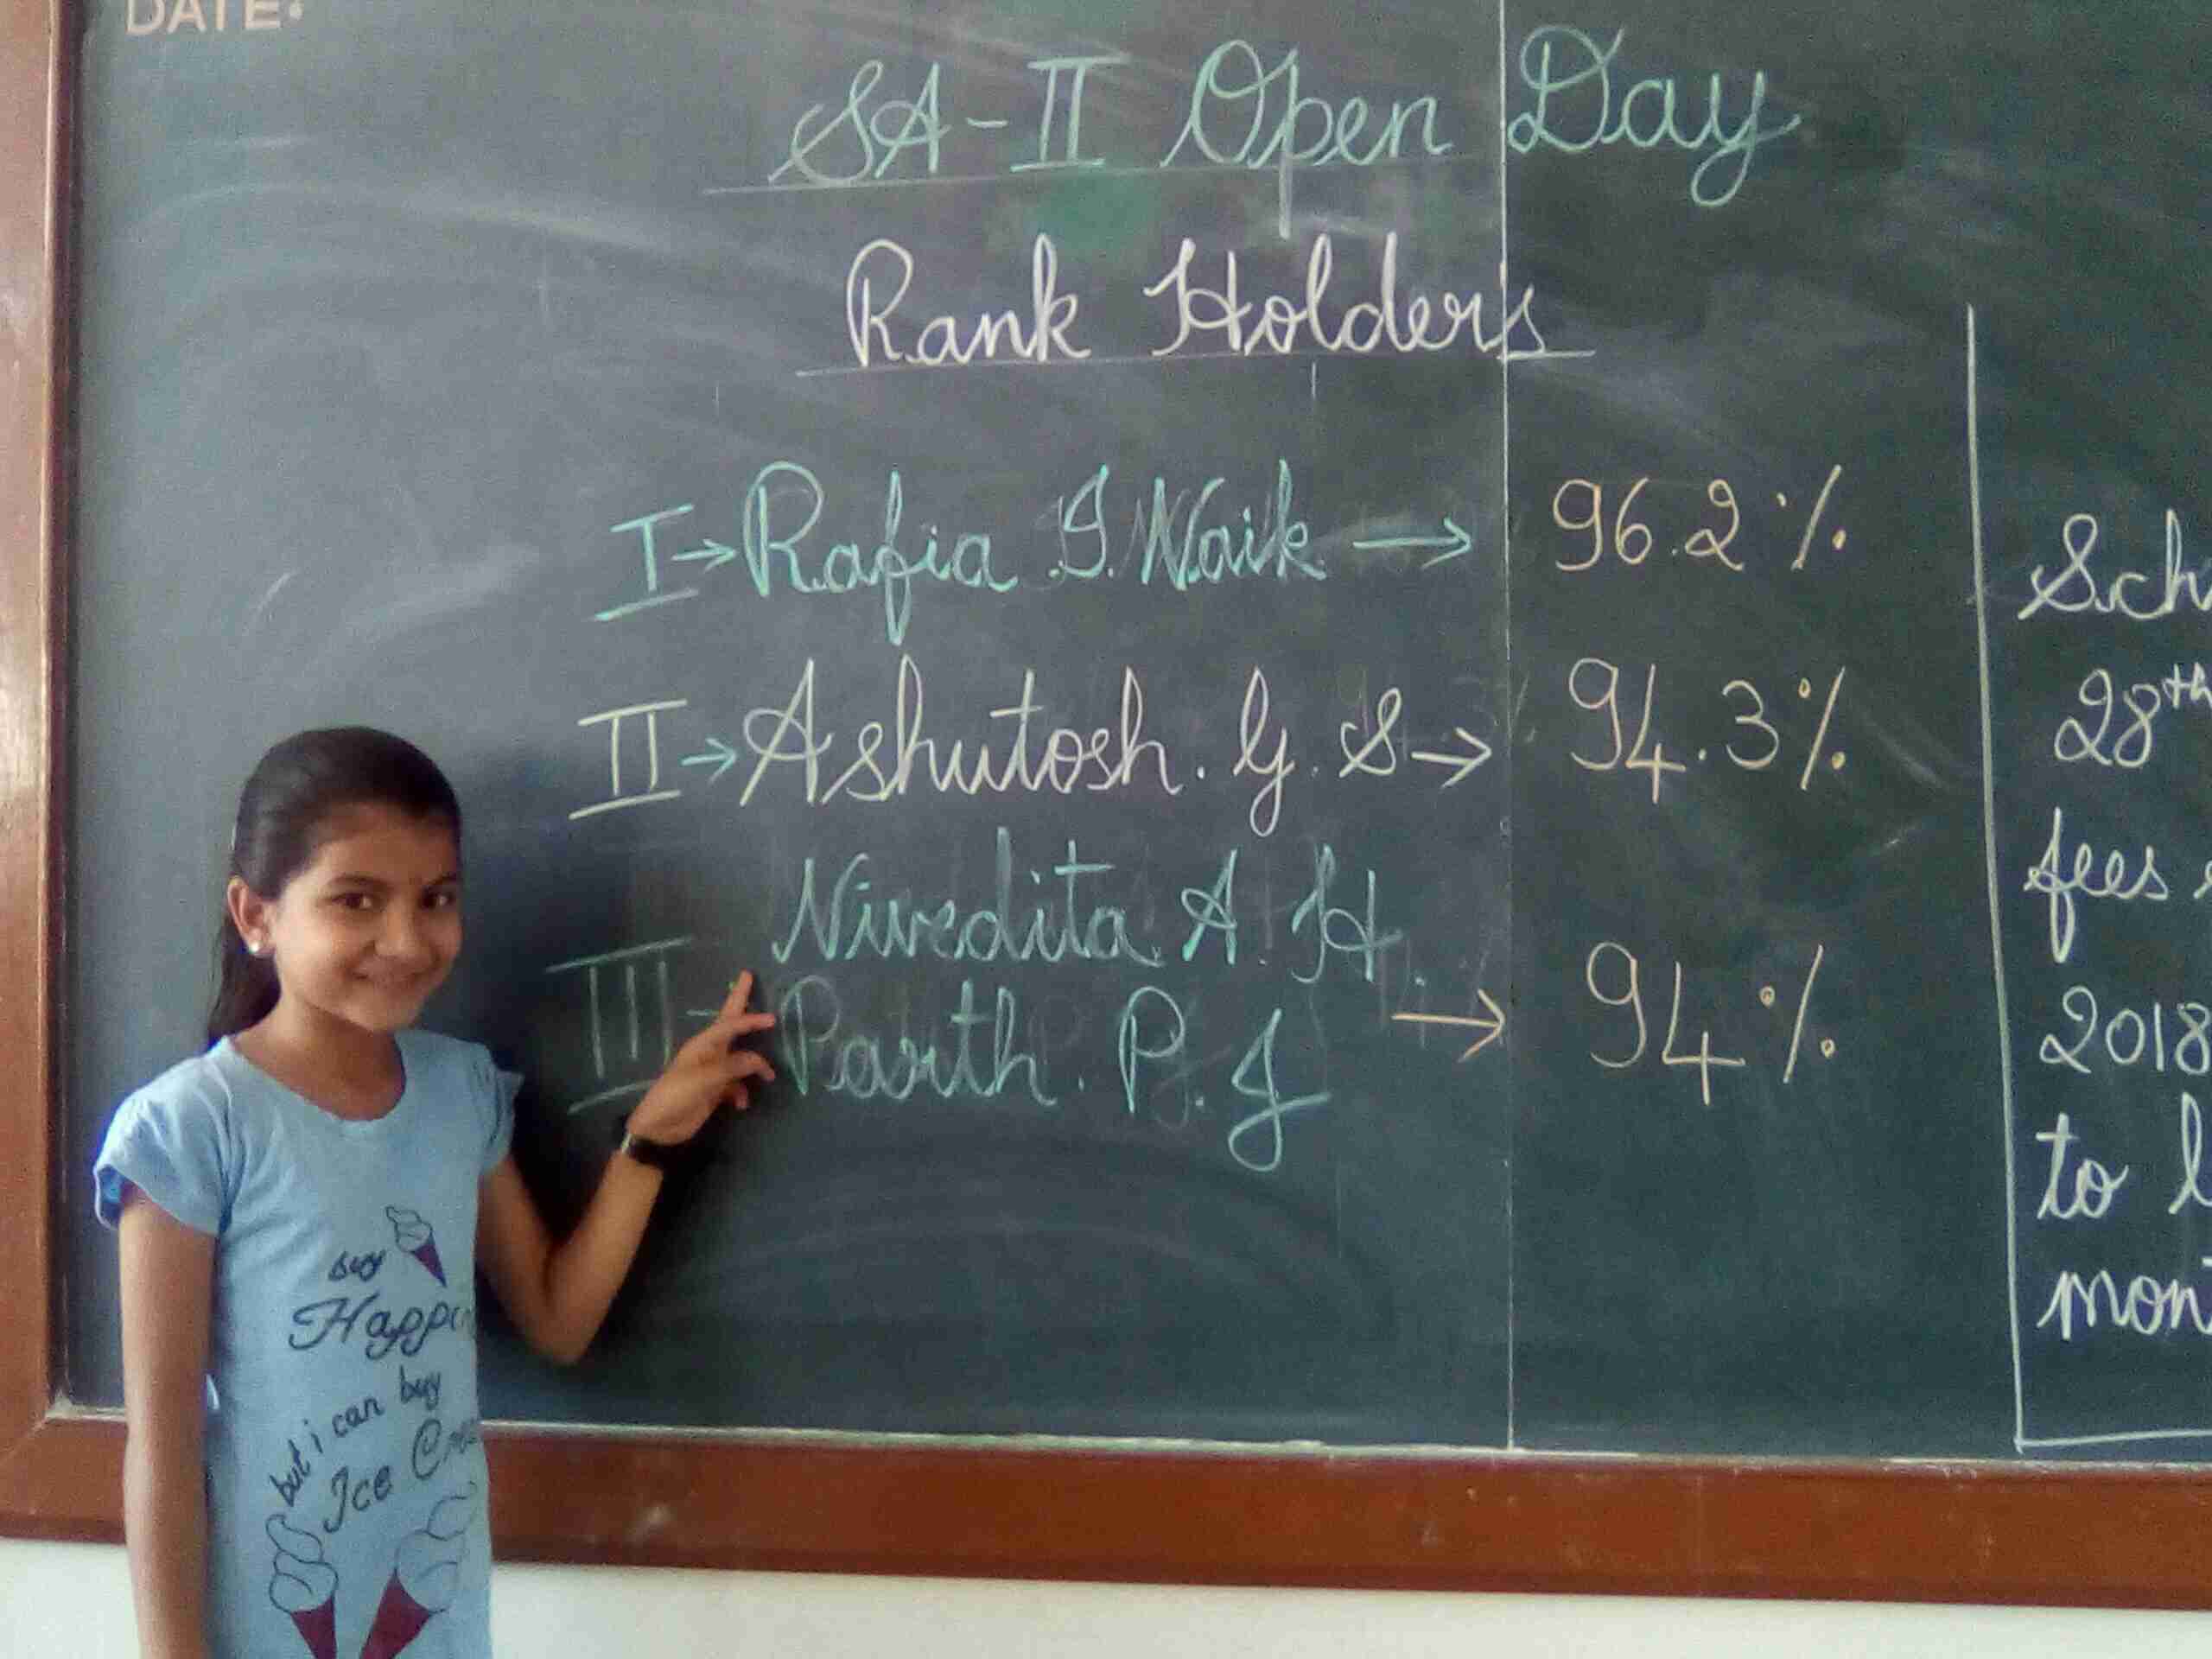 DATE:
SA-II Open Day
Rank Holders
I → Rafia .I. Naik → 96.2%
II → Ashutosh. G. S → 94.3%
Nivedita A. H.
III → Parth. P. J → 94%
Sch
28th
fees
2018
to
mon
buy
Happin
but i can buy
Ice Crea